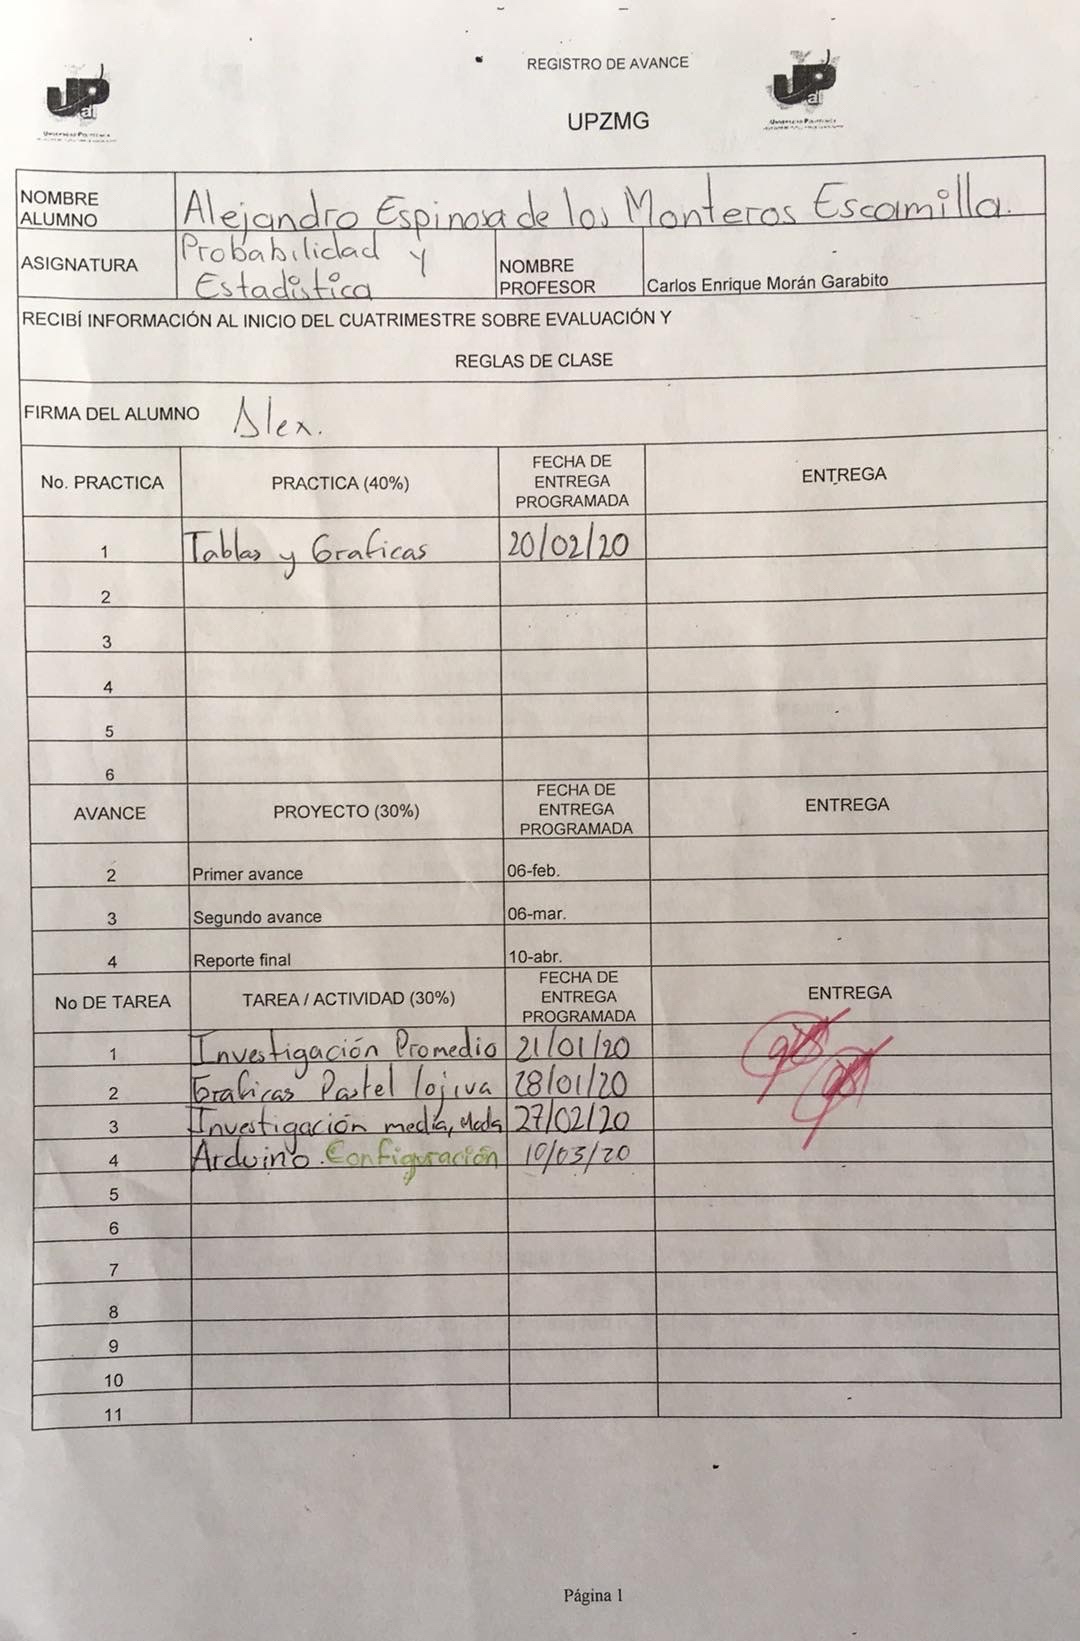 REGISTRO DE AVANCE
UPZMG
UP
al
UP
al
NOMBRE ALUMNO Alejandro Espinosa de los Monteros Escamilla.
ASIGNATURA Probabilidad y Estadística NOMBRE PROFESOR Carlos Enrique Morán Garabito
RECIBÍ INFORMACIÓN AL INICIO DEL CUATRIMESTRE SOBRE EVALUACIÓN Y
REGLAS DE CLASE
FIRMA DEL ALUMNO Alex.
No. PRACTICA PRACTICA (40%) FECHA DE ENTREGA PROGRAMADA ENTREGA
1 Tablas y Graficas 20/02/20
2
3
4
5
6
AVANCE PROYECTO (30%) FECHA DE ENTREGA PROGRAMADA ENTREGA
2 Primer avance 06-feb.
3 Segundo avance 06-mar.
4 Reporte final 10-abr.
No DE TAREA TAREA / ACTIVIDAD (30%) FECHA DE ENTREGA PROGRAMADA ENTREGA
1 Investigación Promedio 21/01/20
2 Graficas Pastel lojiva 28/01/20
3 Investigación media, Moda 27/02/20
4 Arduino. Configuración 10/03/20
5
6
7
8
9
10
11
Página 1